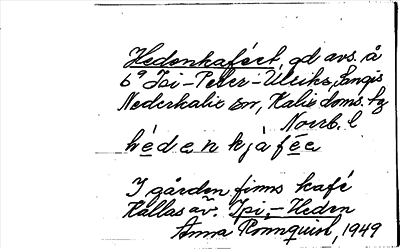 Hedenkaféet, gd avs. å
6⁹ Isi-Peter-Ulriks, Sangis
Nederkalix sn, Kalix doms. hg
Norrb. l
hédenkjàfée
I gården finns kafé
Kallas äv. Ipi-Heden
Anna Rönnquist, 1949